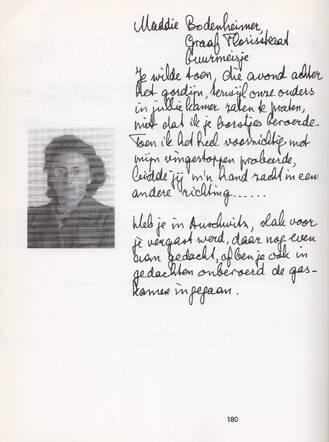 Maddie Bodenheimer,
Graaf Florisstraat
buurmeisje
Je wilde toen, die avond achter
het gordijn, terwijl onze ouders
in jullie kamer zaten te praten,
niet dat ik je borstjes beroerde.
Toen ik het heel voorzichtig, met
mijn vingertoppen probeerde,
leidde jij m'n hand zacht in een
andere richting......
Heb je in Auschwitz, vlak voor
je vergast werd, daar nog even
aan gedacht, of ben je ook in
gedachten onberoerd de gas-
kamer ingegaan.
180